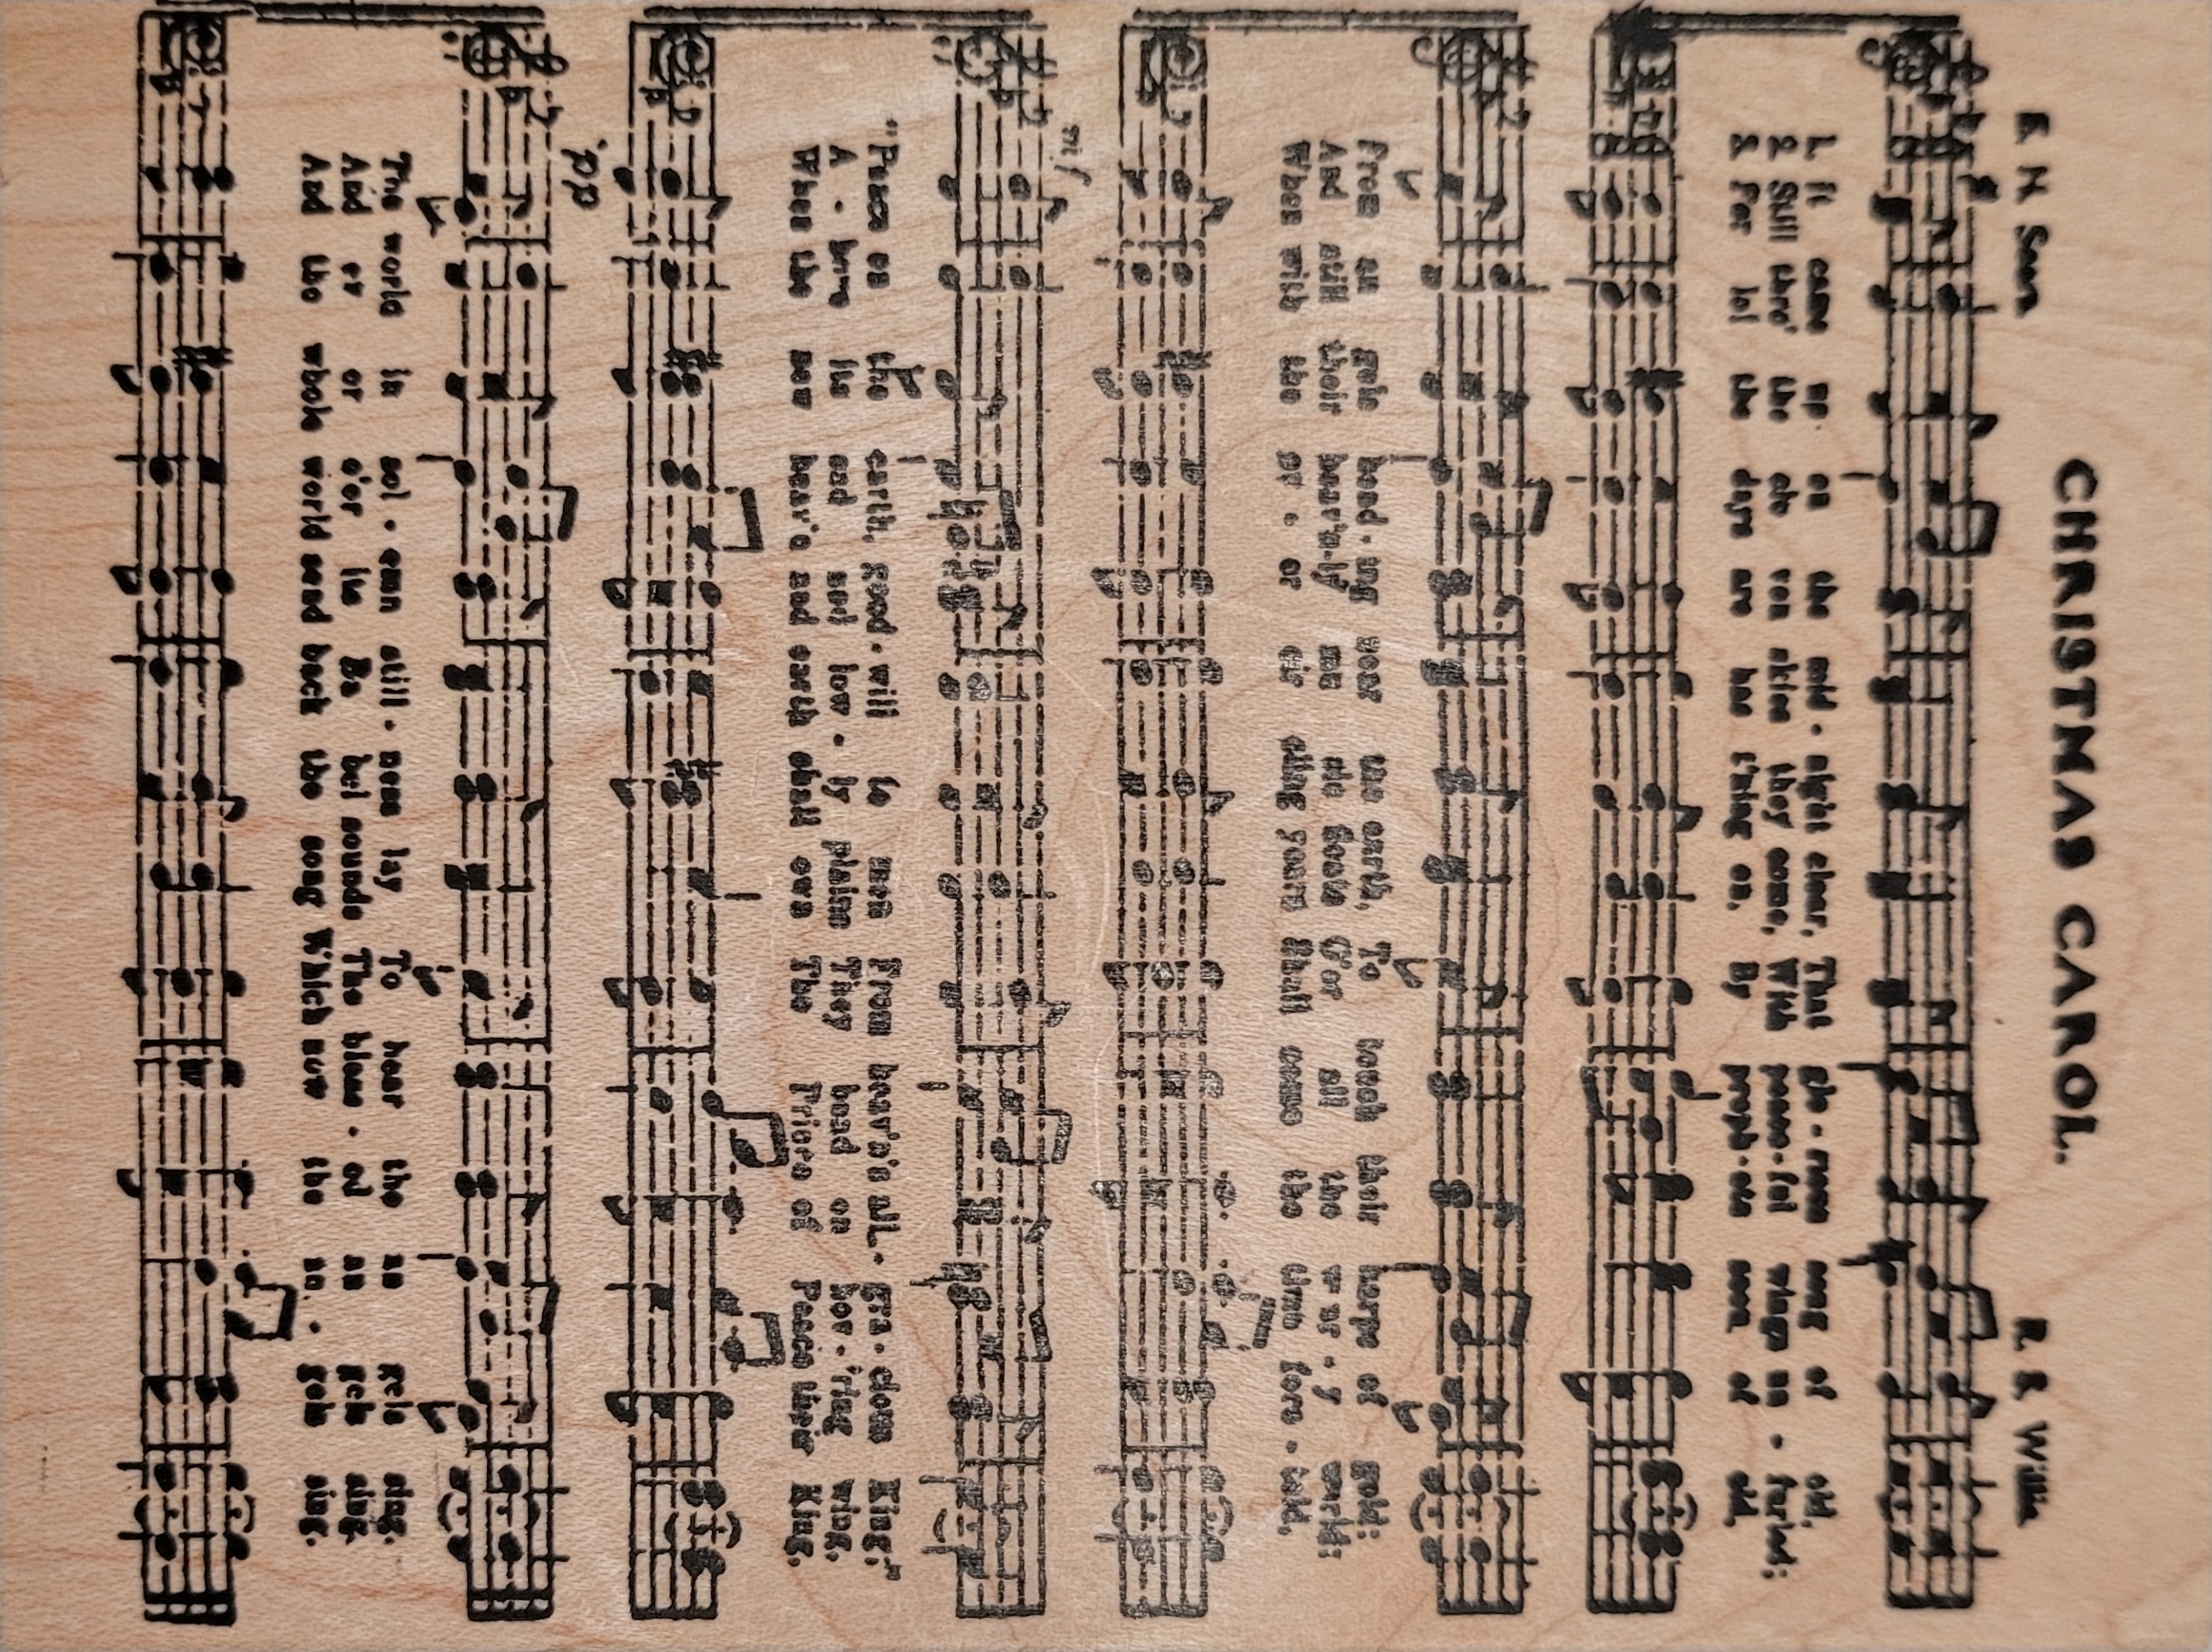 CHRISTMAS CAROL.
E. H. Sears
R. S. Willis
1. It came up on the mid - night clear, That glo - rious song of old,
2. Still thro' the clo ven skies they come, With peace - ful wings un - furled;
3. For lo! the days are has t'ning on, By proph - ets seen of old,
From an gels bend - ing near the earth, To touch their harps of gold;
And still their heav'n - ly mu sic floats O'er all the w ear - y world;
When with the ev - er cir cling years Shall come the time fore - told,
mf
"Peace on the earth, good - will to men From heav'n's all - gra - cious King:"
A - bove its sad and low - ly plains They bend on hov - 'ring wing,
When the new heav'n and earth shall own The Prince of Peace their King,
pp
The world in sol - emn still - ness lay To hear the an gels sing.
And ev er o'er its Ba bel sounds The bless - ed an gels sing.
And the whole world send back the song Which now the an - gels sing.